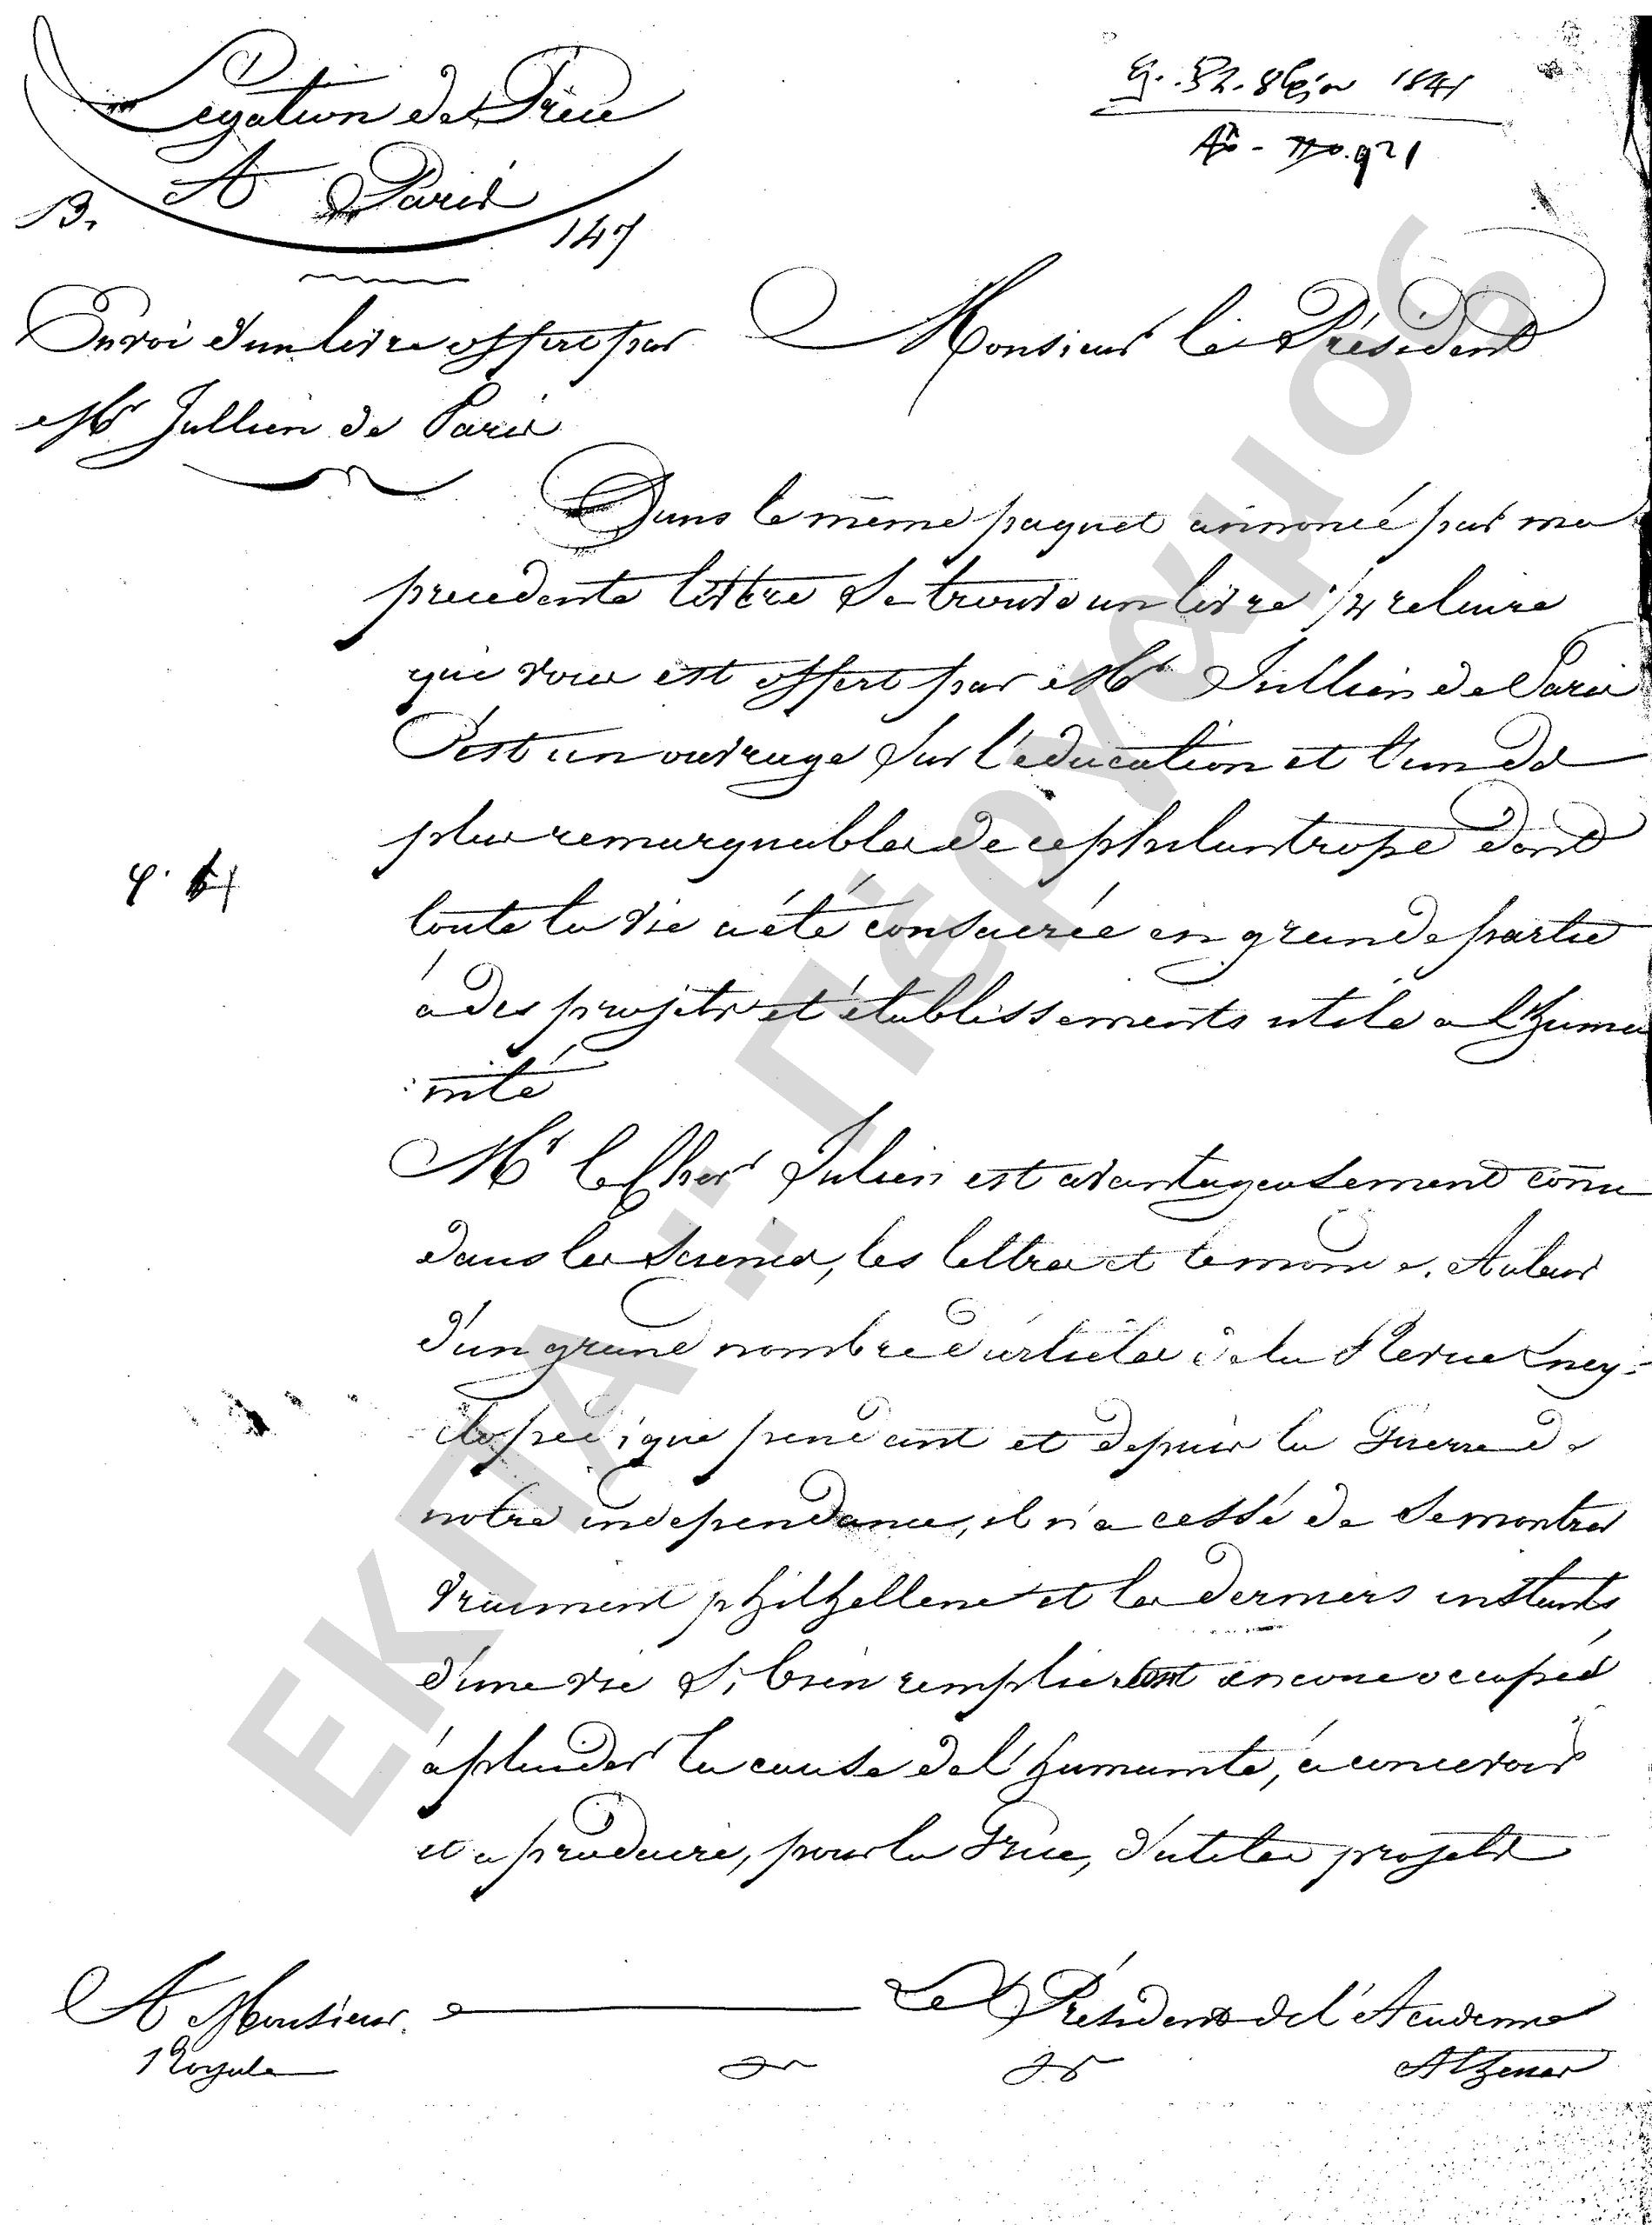 Legation de Grèce
A Paris
B. 147
1841
921
Envoi d'un livre offert par
Mr Jullien de Paris
Monsieur le Président
Dans le même paquet annoncé par ma
precedente lettre se trouve un livre 1/2 reliure
qui vous est offert par Mr Jullien de Paris
C'est un ouvrage sur l'education et l'un des
plus remarquables de ce philantrope dont
toute la vie a été consacrée en grande partie
à des projets et établissements utile a l'huma
:nité
Mr le Cher Julien est avantageusement connu
dans les sciences, les lettres et le monde. Auteur
d'un grand nombre d'articles de la Revue Ency-
clopedique pendant et depuis la Guerre de
notre independance, il n'a cessé de se montrer
vraiment philhellene et les derniers instants
d'une vie si bien remplie sont encore occupés
à plaider la cause de l'humanité, à concevoir
et a produire, pour la Grèce, d'utiles projets
A Monsieur Le Président de l'Academie
Royale
Athenes
ΕΚΠΑ :: Πέργαμος